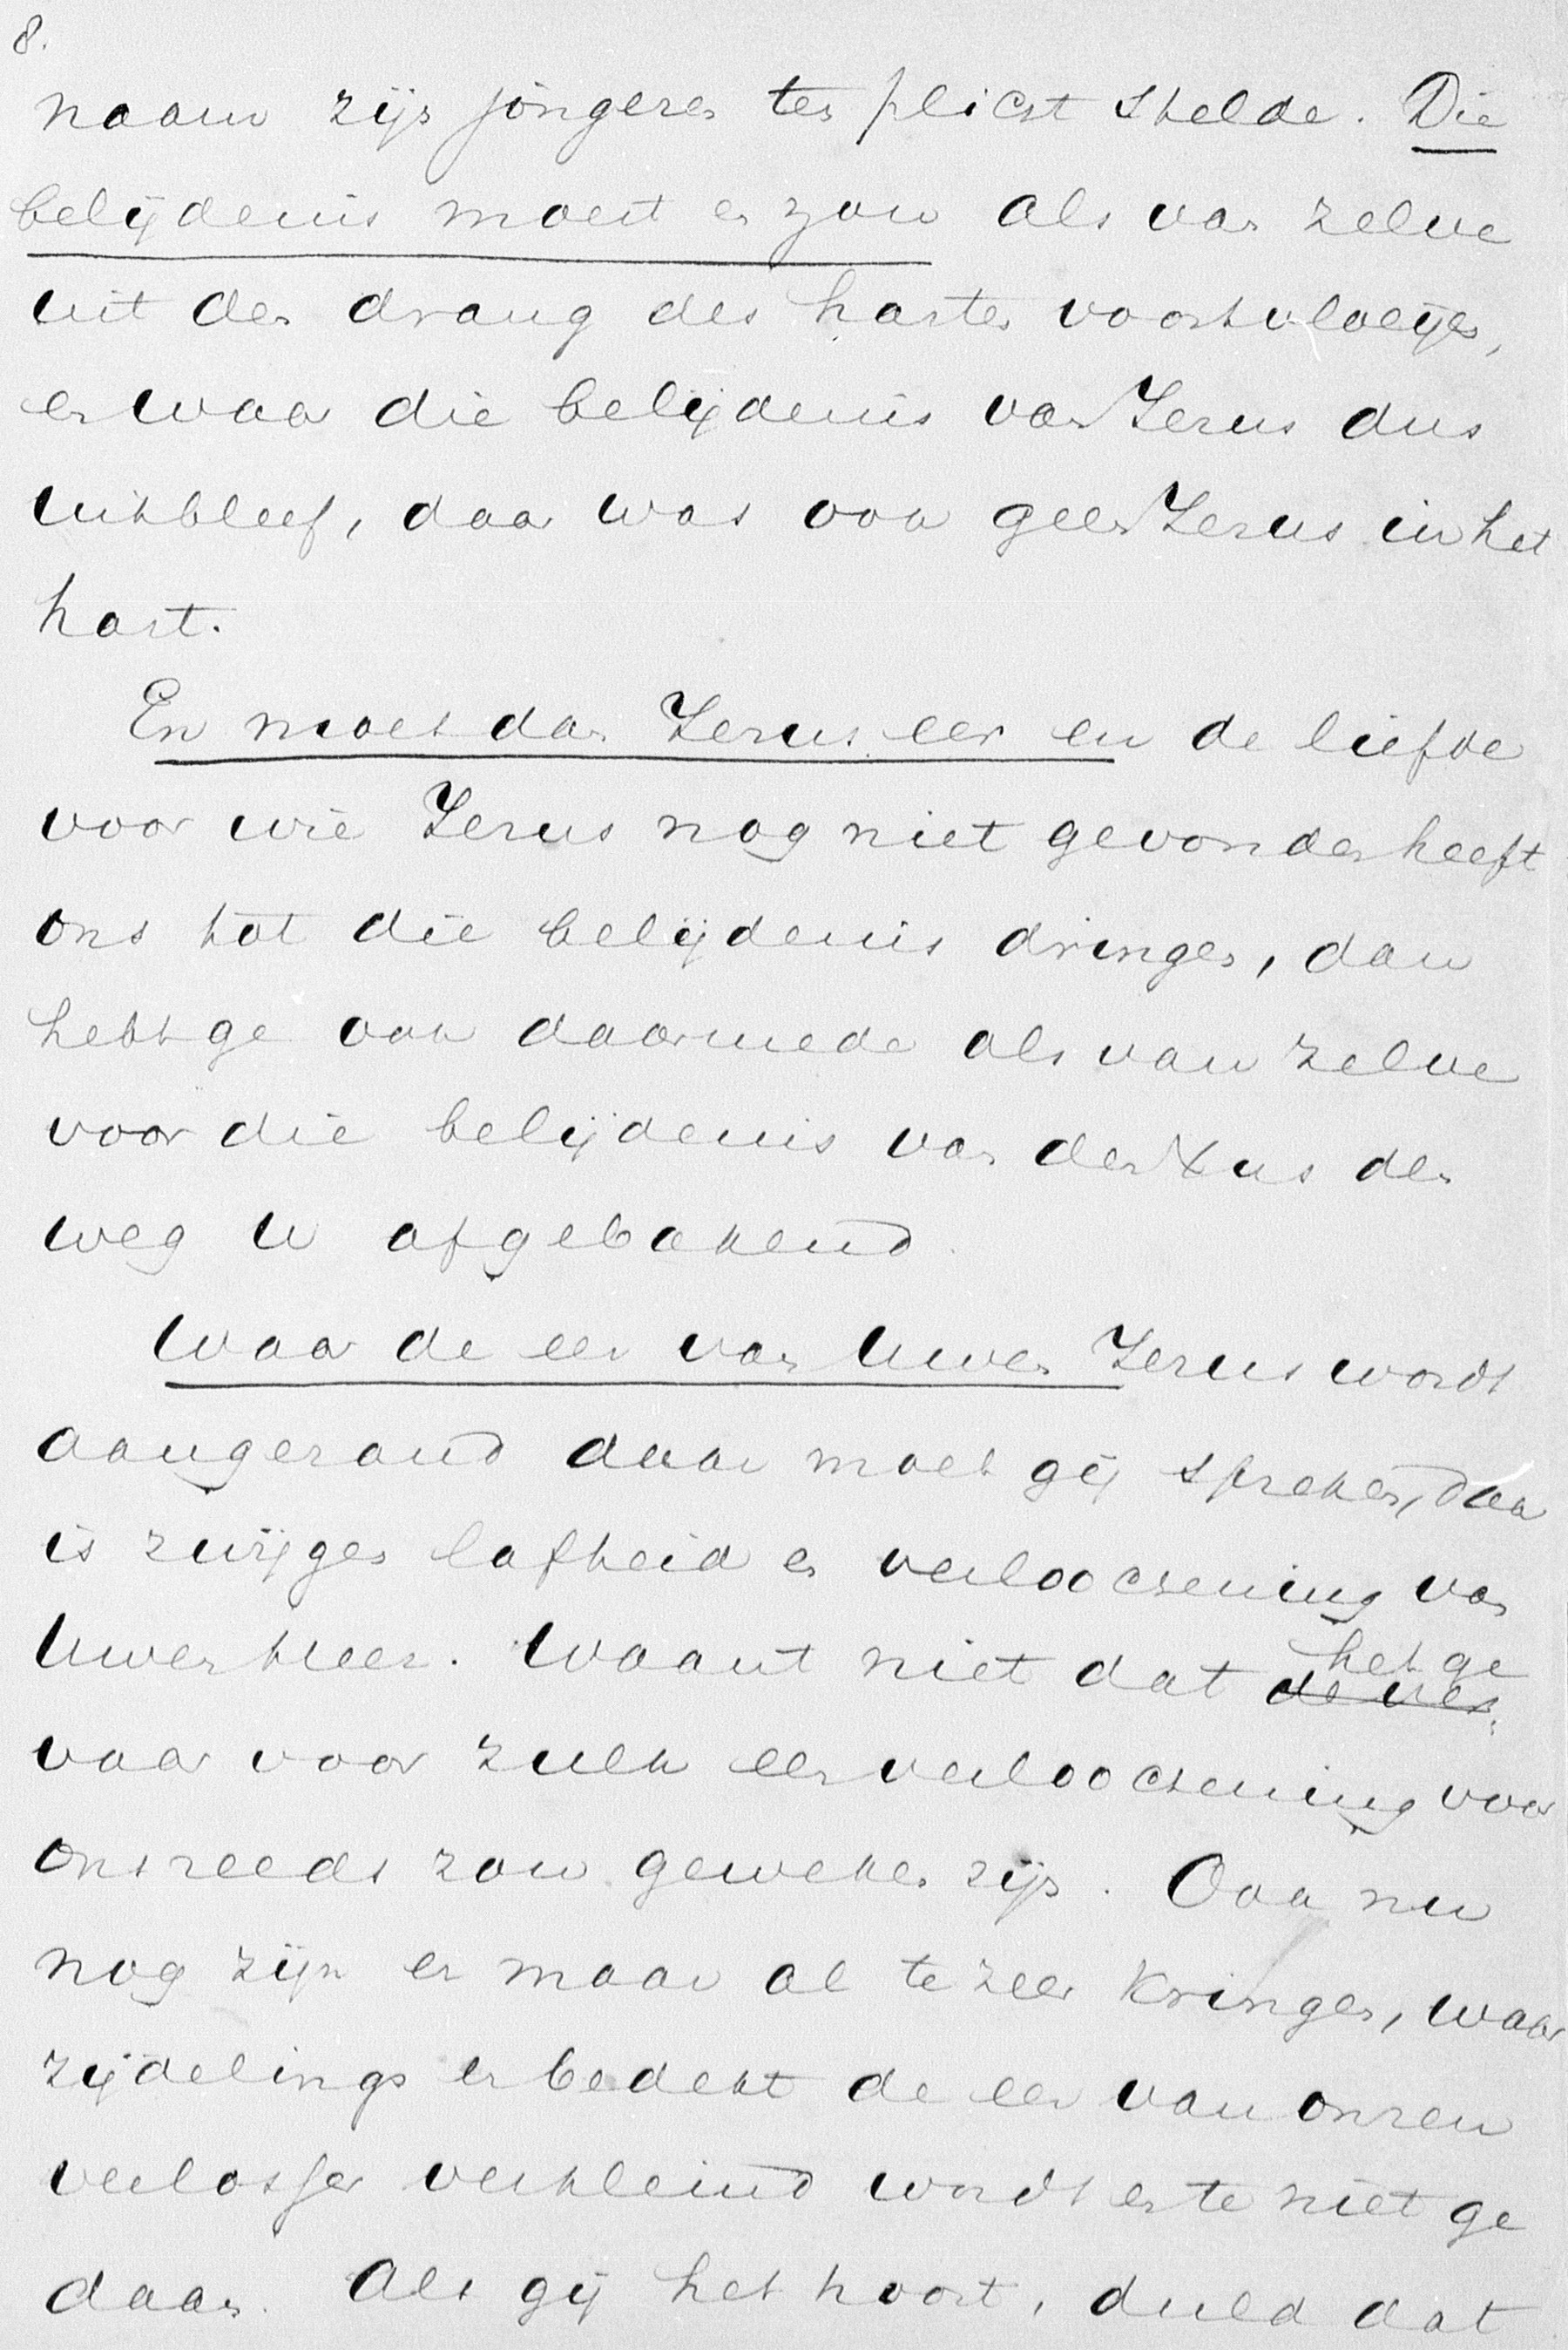 8.
naam zijn jongeren ten plicht stelde. Die
belijdenis moest en zou als van zelve
uit den drang des harten voortvloeijen,
en waar die belijdenis van Jezus dus
uitbleef, daar was ook geen Jezus in het
hart.
En moet dan Jezus eer en de liefde
voor wie Jezus nog niet gevonden heeft
ons tot die belijdenis dringen, dan
hebt ge ook daarmede als van zelve
voor die belijdenis van den Xus den
weg U afgebakend.
Waar de eer van Uwen Jezus wordt
aangerand daar moet gij spreken, daar
is zwijgen lafheid en verloochening van
Uwen heer. Waant niet dat de vrees het ge
vaar voor zulk een verloochening voor
ons reeds zou geweken zijn. Ook nu
nog zijn er maar al te zeer kringen, waar
zijdelings en bedekt de eer van onzen
verlosser verkleind wordt en te niet ge
daan. Als gij het hoort, duld dat